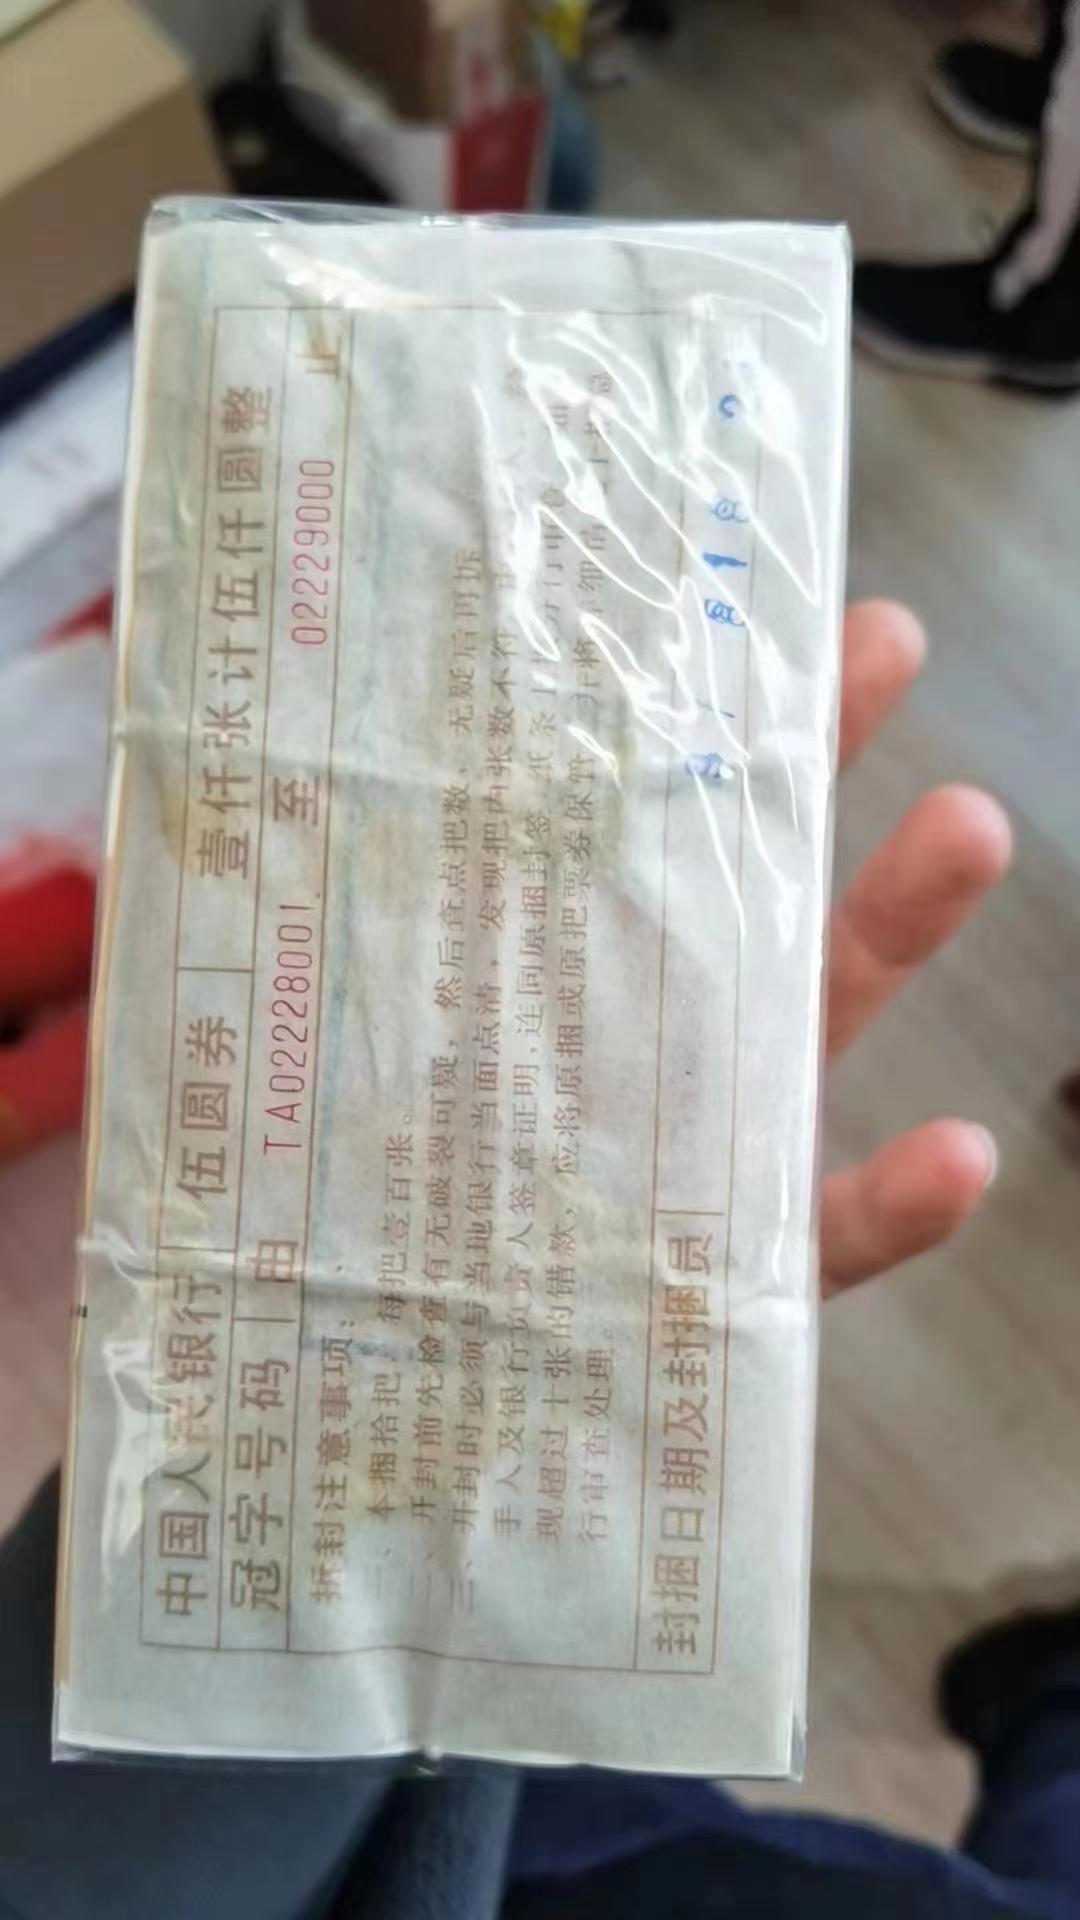 中国人民银行 伍圆券 壹仟张计伍仟圆整
冠字号码 由 TA02228001 至 02229000 止
拆封注意事项：
一、本捆拾把，每把壹百张。
二、开封前先检查有无破裂可疑，然后查点把数，无疑后再拆
三、开封时必须与当地银行当面点清，发现把内张数不符
手人及银行负责人签章证明，连同原捆封签、纸条
现超过十张的错款，应将原捆或原把票券保管，并将详细情
行审查处理。
封捆日期及封捆员